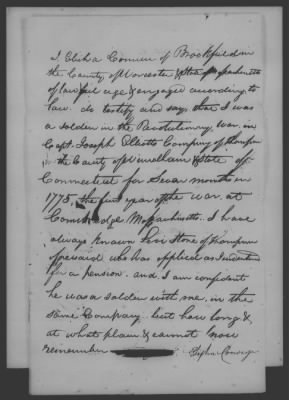 I Elisha Converse of Brookfield in
the County of Worcester & State of Massachusetts
of lawful age & engaged according to
law. do testify and say that I was
a soldier in the Revolutionary War in
Capt. Joseph Elliotts Company of Thompson
in the County of Windham & State of
Connecticut for Seven months in
1775, the first year of the war. at
Cambridge Massachusetts. I have
always known Levi Stone of Thompson
aforesaid who has applied as I understand
for a pension. and I am confident
he was a soldier with me, in the
same Company but how long &
at what place I cannot now
remember
Elisha Converse